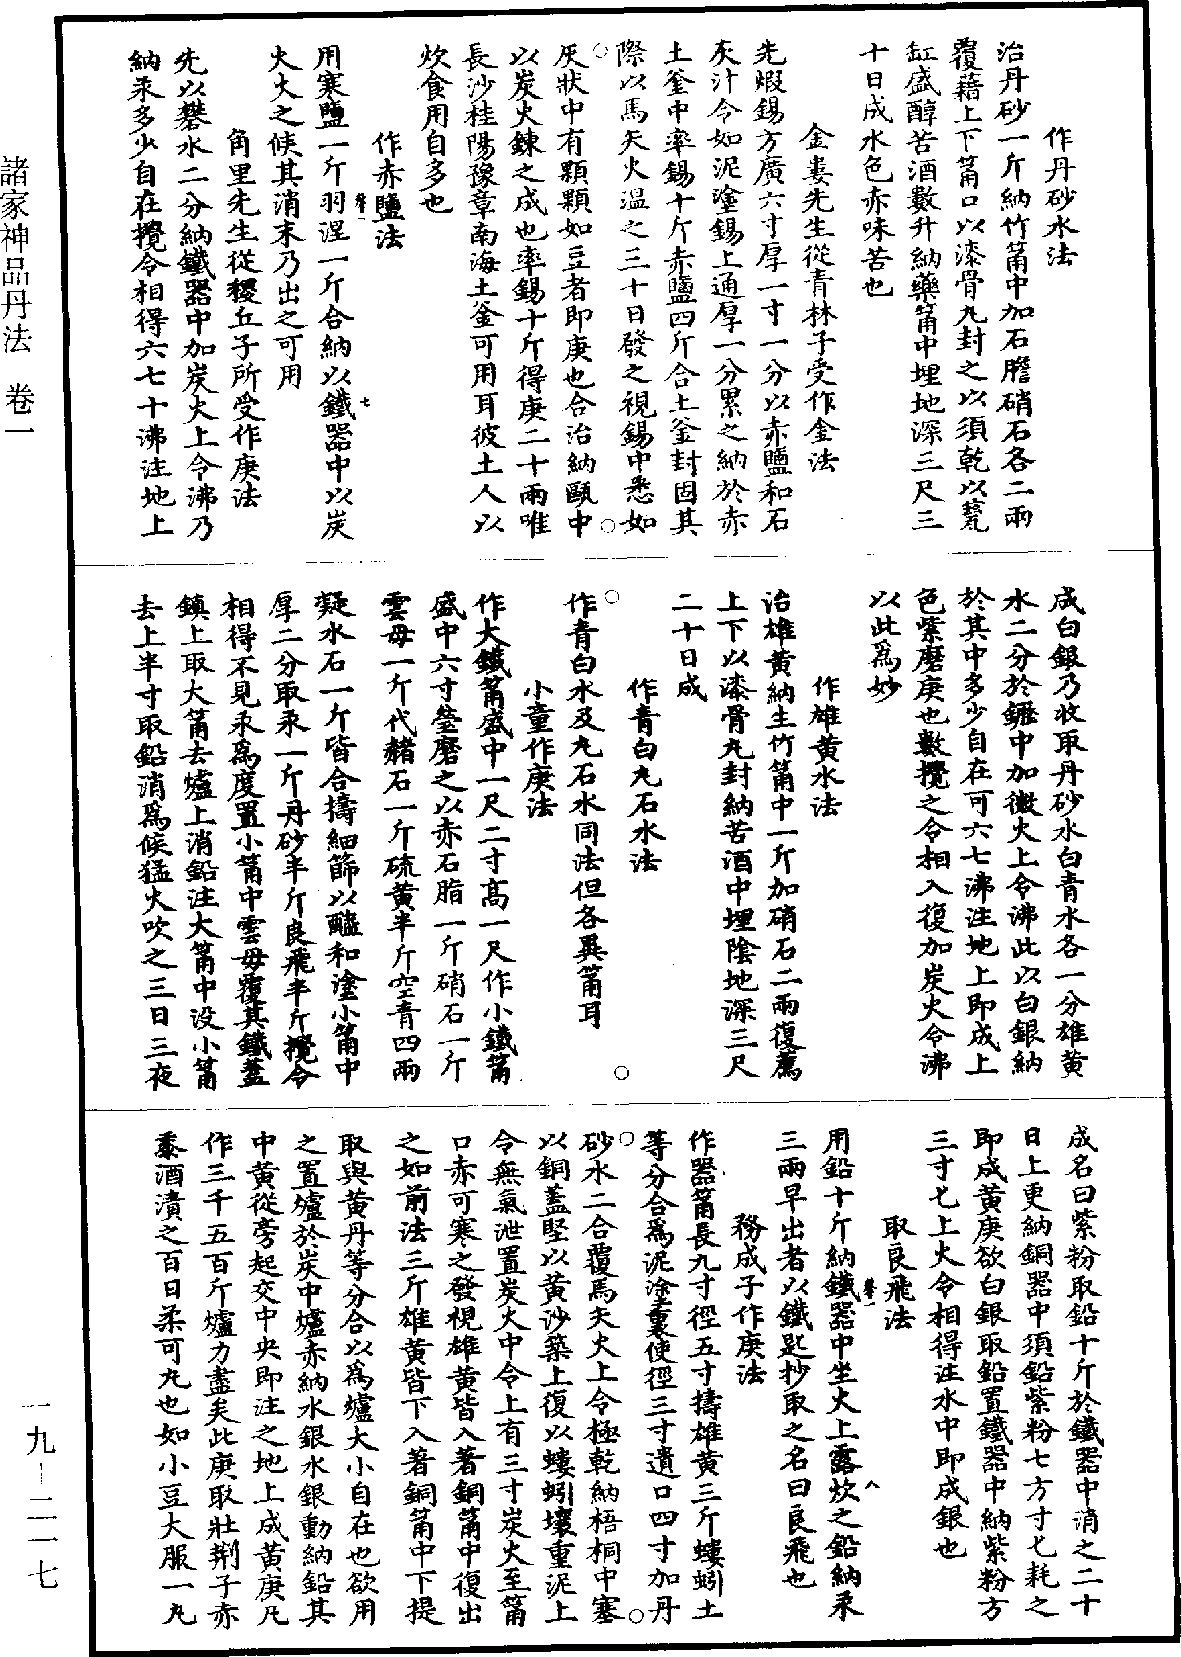 作丹砂水法
治丹砂一斤納竹筩中加石膽硝石各二兩
覆藉上下筩口以漆骨丸封之以須乾以甆
缸盛醇苦酒數升納藥筩中埋地深三尺三
十日成水色赤味苦也
金婁先生從青林子受作金法
先煆錫方廣六寸厚一寸一分以赤鹽和石
灰汁令如泥塗錫上通厚一分累之納於赤
土釜中率錫十斤赤鹽四斤合土釜封固其
際以馬矢火溫之三十日發之視錫中悉如
灰狀中有顆顆如豆者即庚也合治納甌中
以炭火鍊之成也率錫十斤得庚二十兩唯
長沙桂陽豫章南海土釜可用耳彼土人以
炊食用自多也
作赤鹽法
用寒鹽一斤羽涅一斤合納以鐵器中以炭
火火之候其消末乃出之可用
角里先生從稷丘子所受作庚法
先以礬水二分納鐵器中加炭火上令沸乃
納汞多少自在攪令相得六七十沸注地上
成白銀乃收取丹砂水白青水各一分雄黃
水二分於鑪中加微火上令沸此以白銀納
於其中多少自在可六七沸注地上即成上
色紫磨庚也數攪之令相入復加炭火令沸
以此為妙
作雄黃水法
治雄黃納生竹筩中一斤加硝石二兩復薦
上下以漆骨丸封納苦酒中埋陰地深三尺
二十日成
作青白丸石水法
作青白水及丸石水同法但各異筩耳
小童作庚法
作大鐵筩盛中一尺二寸高一尺作小鐵筩
盛中六寸瑩磨之以赤石脂一斤硝石一斤
雲母一斤代赭石一斤硫黃半斤空青四兩
凝水石一斤皆合擣細篩以醯和塗小筩中
厚二分取汞一斤丹砂半斤良飛半斤攪令
相得不見汞為度置小筩中雲母覆其鐵蓋
鎮上取大筩去爐上消鉛注大筩中沒小筩
去上半寸取鉛消為候猛火吹之三日三夜
成名曰紫粉取鉛十斤於鐵器中消之二十
日上更納銅器中須鉛紫粉七方寸匕耗之
即成黃庚欲白銀取鉛置鐵器中納紫粉方
三寸匕上火令相得注水中即成銀也
取良飛法
用鉛十斤納鐵器中坐火上露炊之鉛納汞
三兩早出者以鐵匙抄取之名曰良飛也
務成子作庚法
作器筩長九寸徑五寸擣雄黃三斤螻蚓土
等分合為泥塗裏使徑三寸遺口四寸加丹
砂水二合覆馬矢火上令極乾納梧桐中塞
以銅蓋堅以黃沙築上復以螻蚓壤重泥上
令無氣泄置炭火中令上有三寸炭火至筩
口赤可寒之發視雄黃皆入著銅筩中復出
之如前法三斤雄黃皆下入著銅筩中下提
取與黃丹等分合以為爐大小自在也欲用
之置爐於炭中爐赤納水銀水銀動納鉛其
中黃從旁起交中央即注之地上成黃庚凡
作三千五百斤爐力盡矣此庚取壯荆子赤
黍酒漬之百日柔可丸也如小豆大服一丸
諸家神品丹法 卷一
一九—二一七